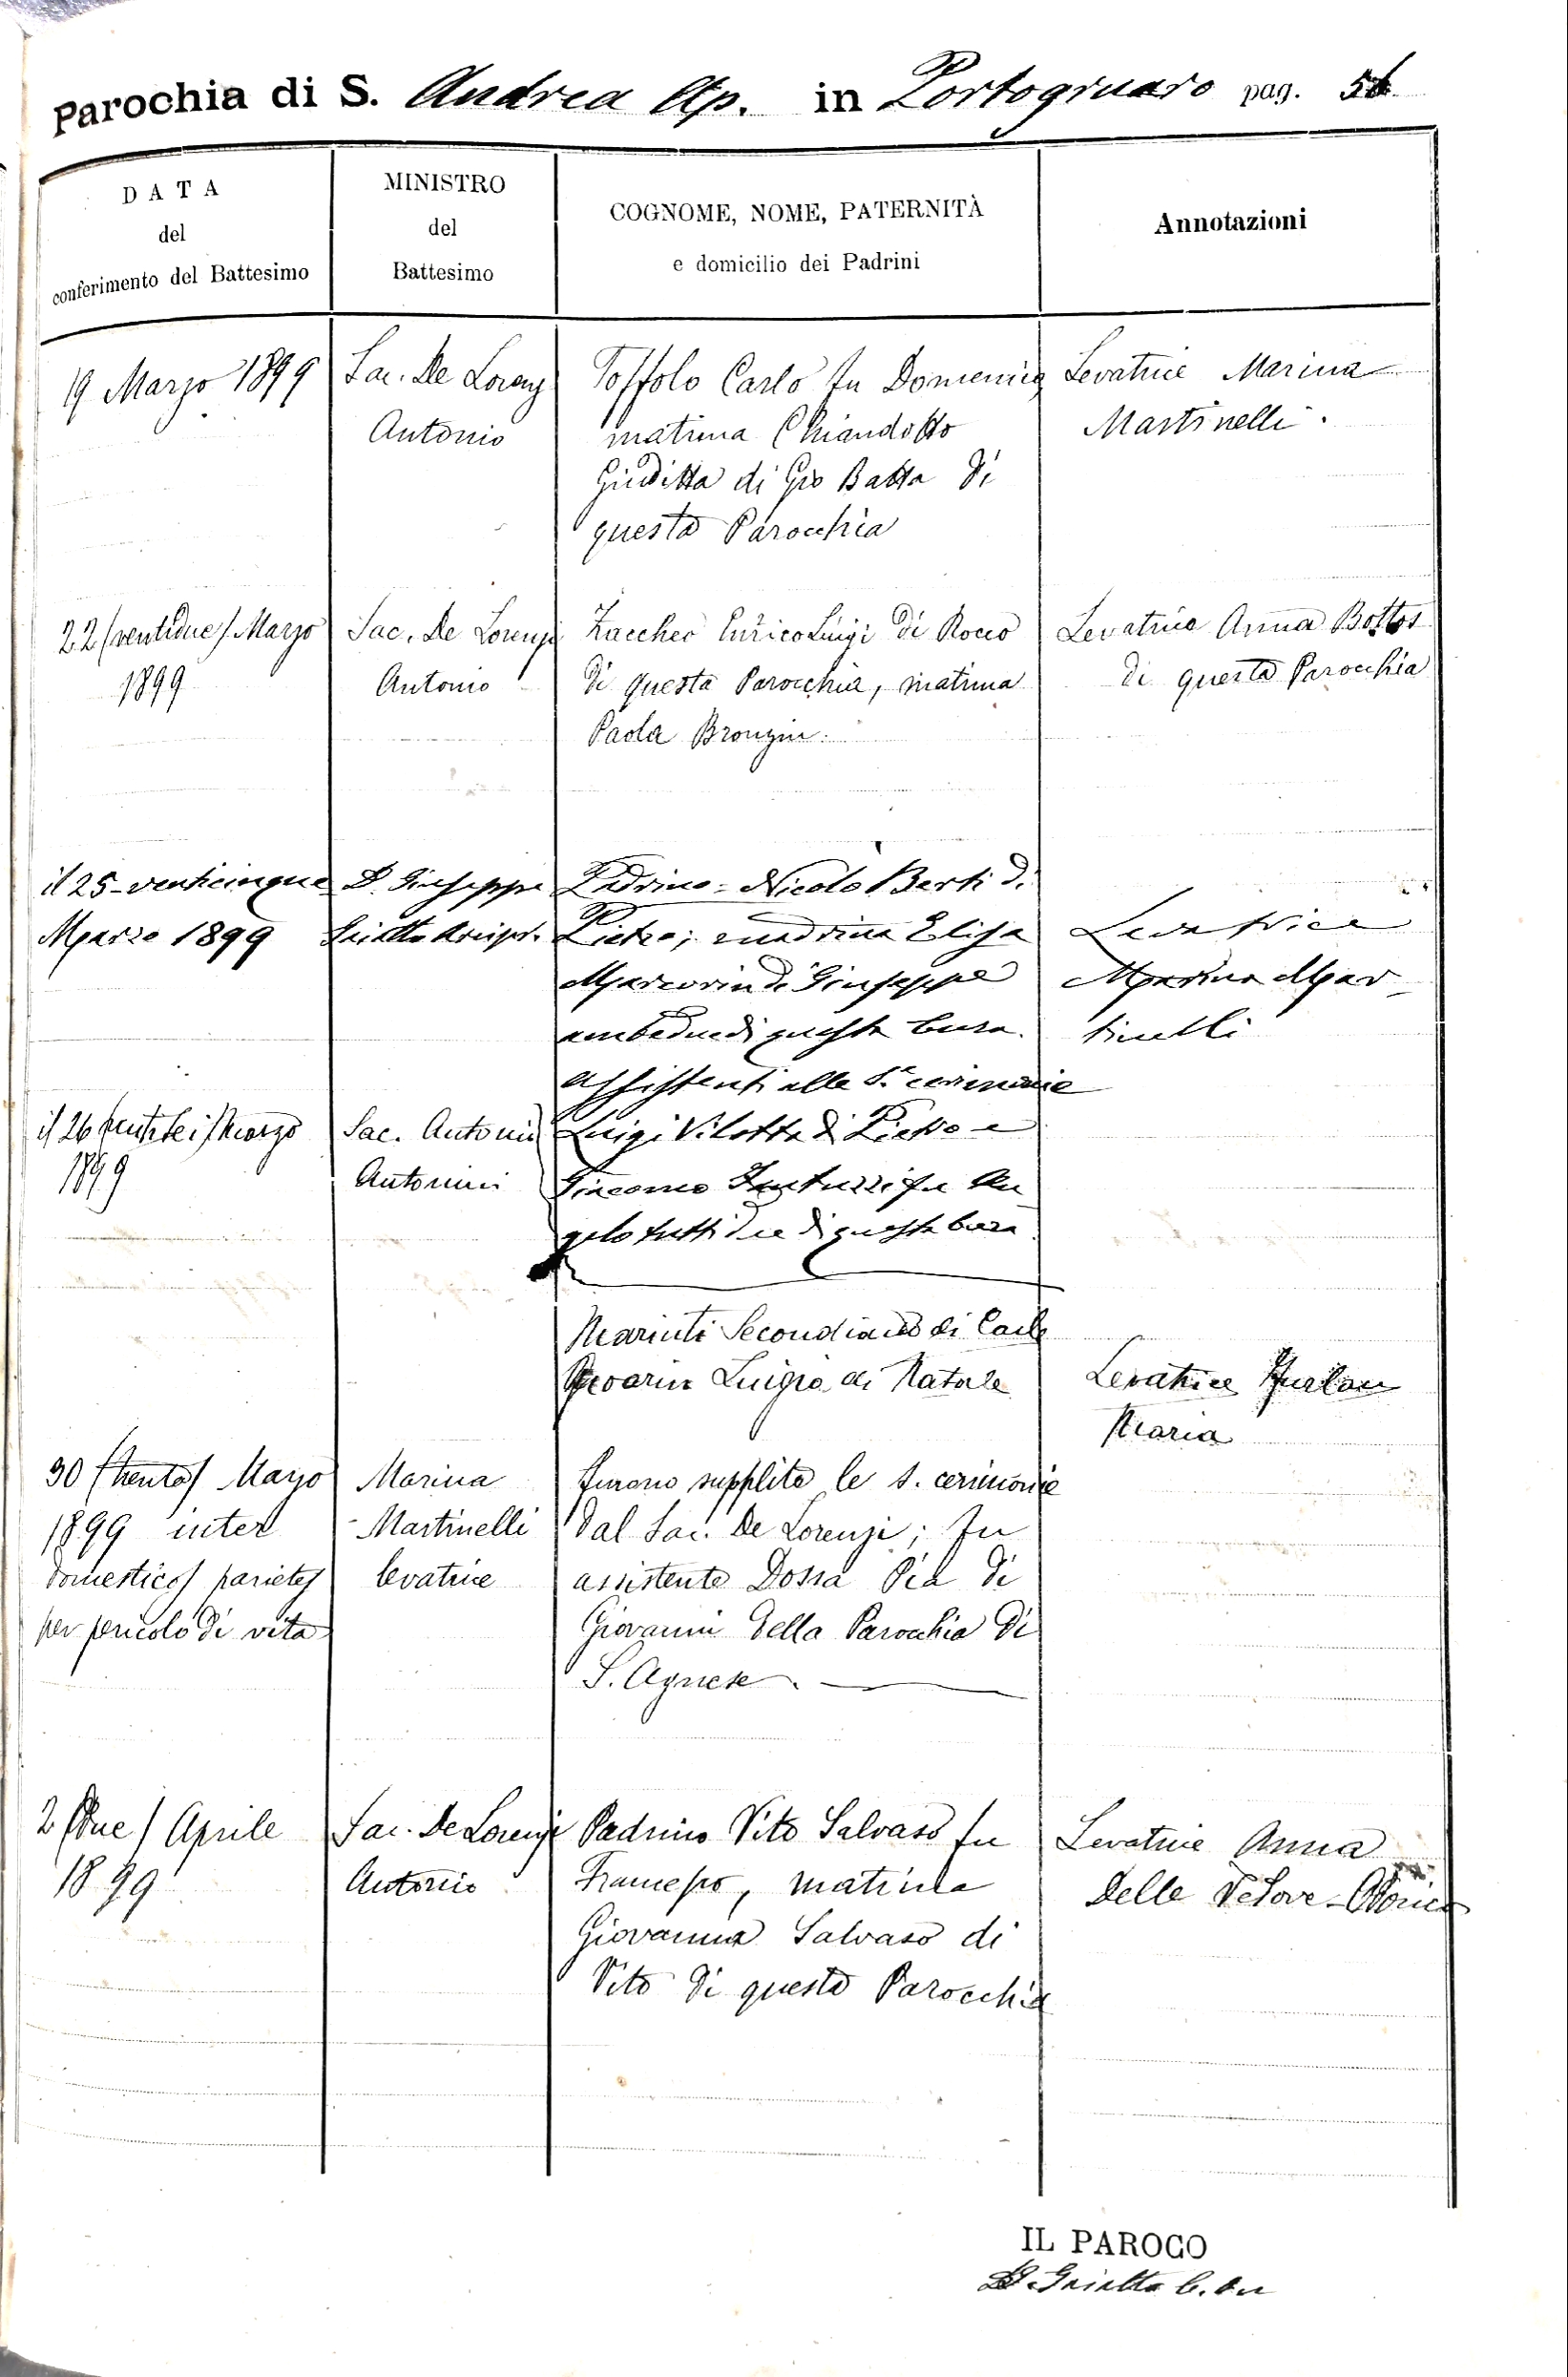 Parochia di S. Andrea Ap. in Portogruaro pag.
DATA
del
conferimento del Battesimo
MINISTRO
del
Battesimo
COGNOME, NOME, PATERNITÀ
e domicilio dei Padrini
Annotazioni
19 Marzo 1899
Sac. De Lorenzi
Antonio
Toffolo Carlo fu Domenico
matrina Chiandotto
Giuditta di Gio Batta di
questa Parocchia
Levatrice Marina
Martinelli.
22 (ventidue) Marzo
1899
Sac. De Lorenzi
Antonio
Zaccheo Enrico Luigi di Rocco
di questa Parocchia, matrina
Paola Bronzin.
Levatrice Anna Bottos
di questa Parocchia
il 25 - venticinque
Marzo 1899
D. Giuseppe
Padrino = Nicolò Berti di
Pietro; madrina Elisa
Marcorin di Giuseppe
ambedue di questa Cura.
assistenti alle S.e cerimonie
Levatrice
Marina Mar-
tinelli
il 26 (ventisei) Marzo
1899
Sac. Antonio
Antonini
Luigi Vilotta di Pietro e
Giacomo fu An
gelo tutti due di questa Cura
Secondiano di Carlo
Luigia di Natale
Levatrice Furlan
Maria
30 (trenta) Marzo
1899 inter
domesticos parietes
per pericolo di vita
Marina
Martinelli
levatrice
furono supplite le s. cerimonie
dal Sac. De Lorenzi; fu
assistente Dossa Pia di
Giovanni della Parocchia di
S. Agnese.
2 (due) Aprile
1899
Sac. De Lorenzi
Antonio
Padrino Vito Salvaso fu
Francesco, matrina
Giovanna Salvaso di
Vito di questa Parocchia
Levatrice Anna
Delle Vedove-Odorico
IL PAROCO